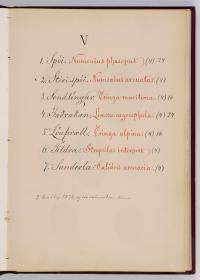 V
1. Spói. Numenius phæopus. (4) 24
2. Stóri spói. Numenius arcuatus. (4)
3. Sendlingur. Tringa maritima. (4) 16
4. Jaðrakan. Limosa ægocephala. (4) 24
5. Lóuþræll. Tringa alpina. (4) 16
6. Tildra. Strepsilas interpres. (4)
7. Sanderla. Calidris arenaria. (4)